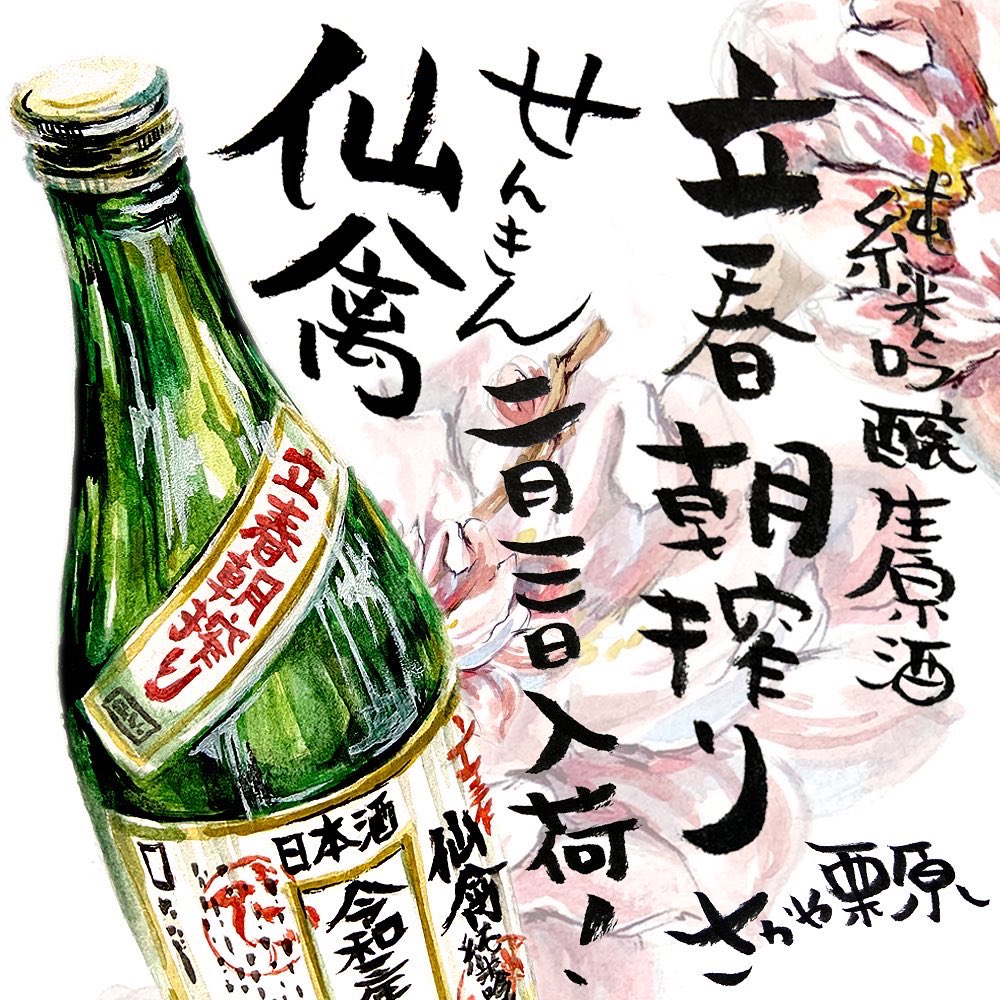 純米吟醸生原酒
立春朝搾り
せんきん
二月三日入荷!
仙禽
さかや栗原
立春朝搾り
日本酒
仙禽
令和